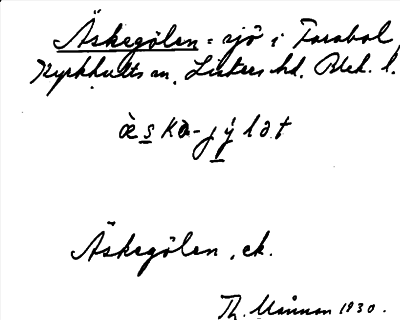 Äskegölen = sjö i Farabol,
Kyrkhults sn. Listers hd. Blek. l.
æ̀skə-jỳlət
Äskegölen, ek.
Th. Månnan 1930.